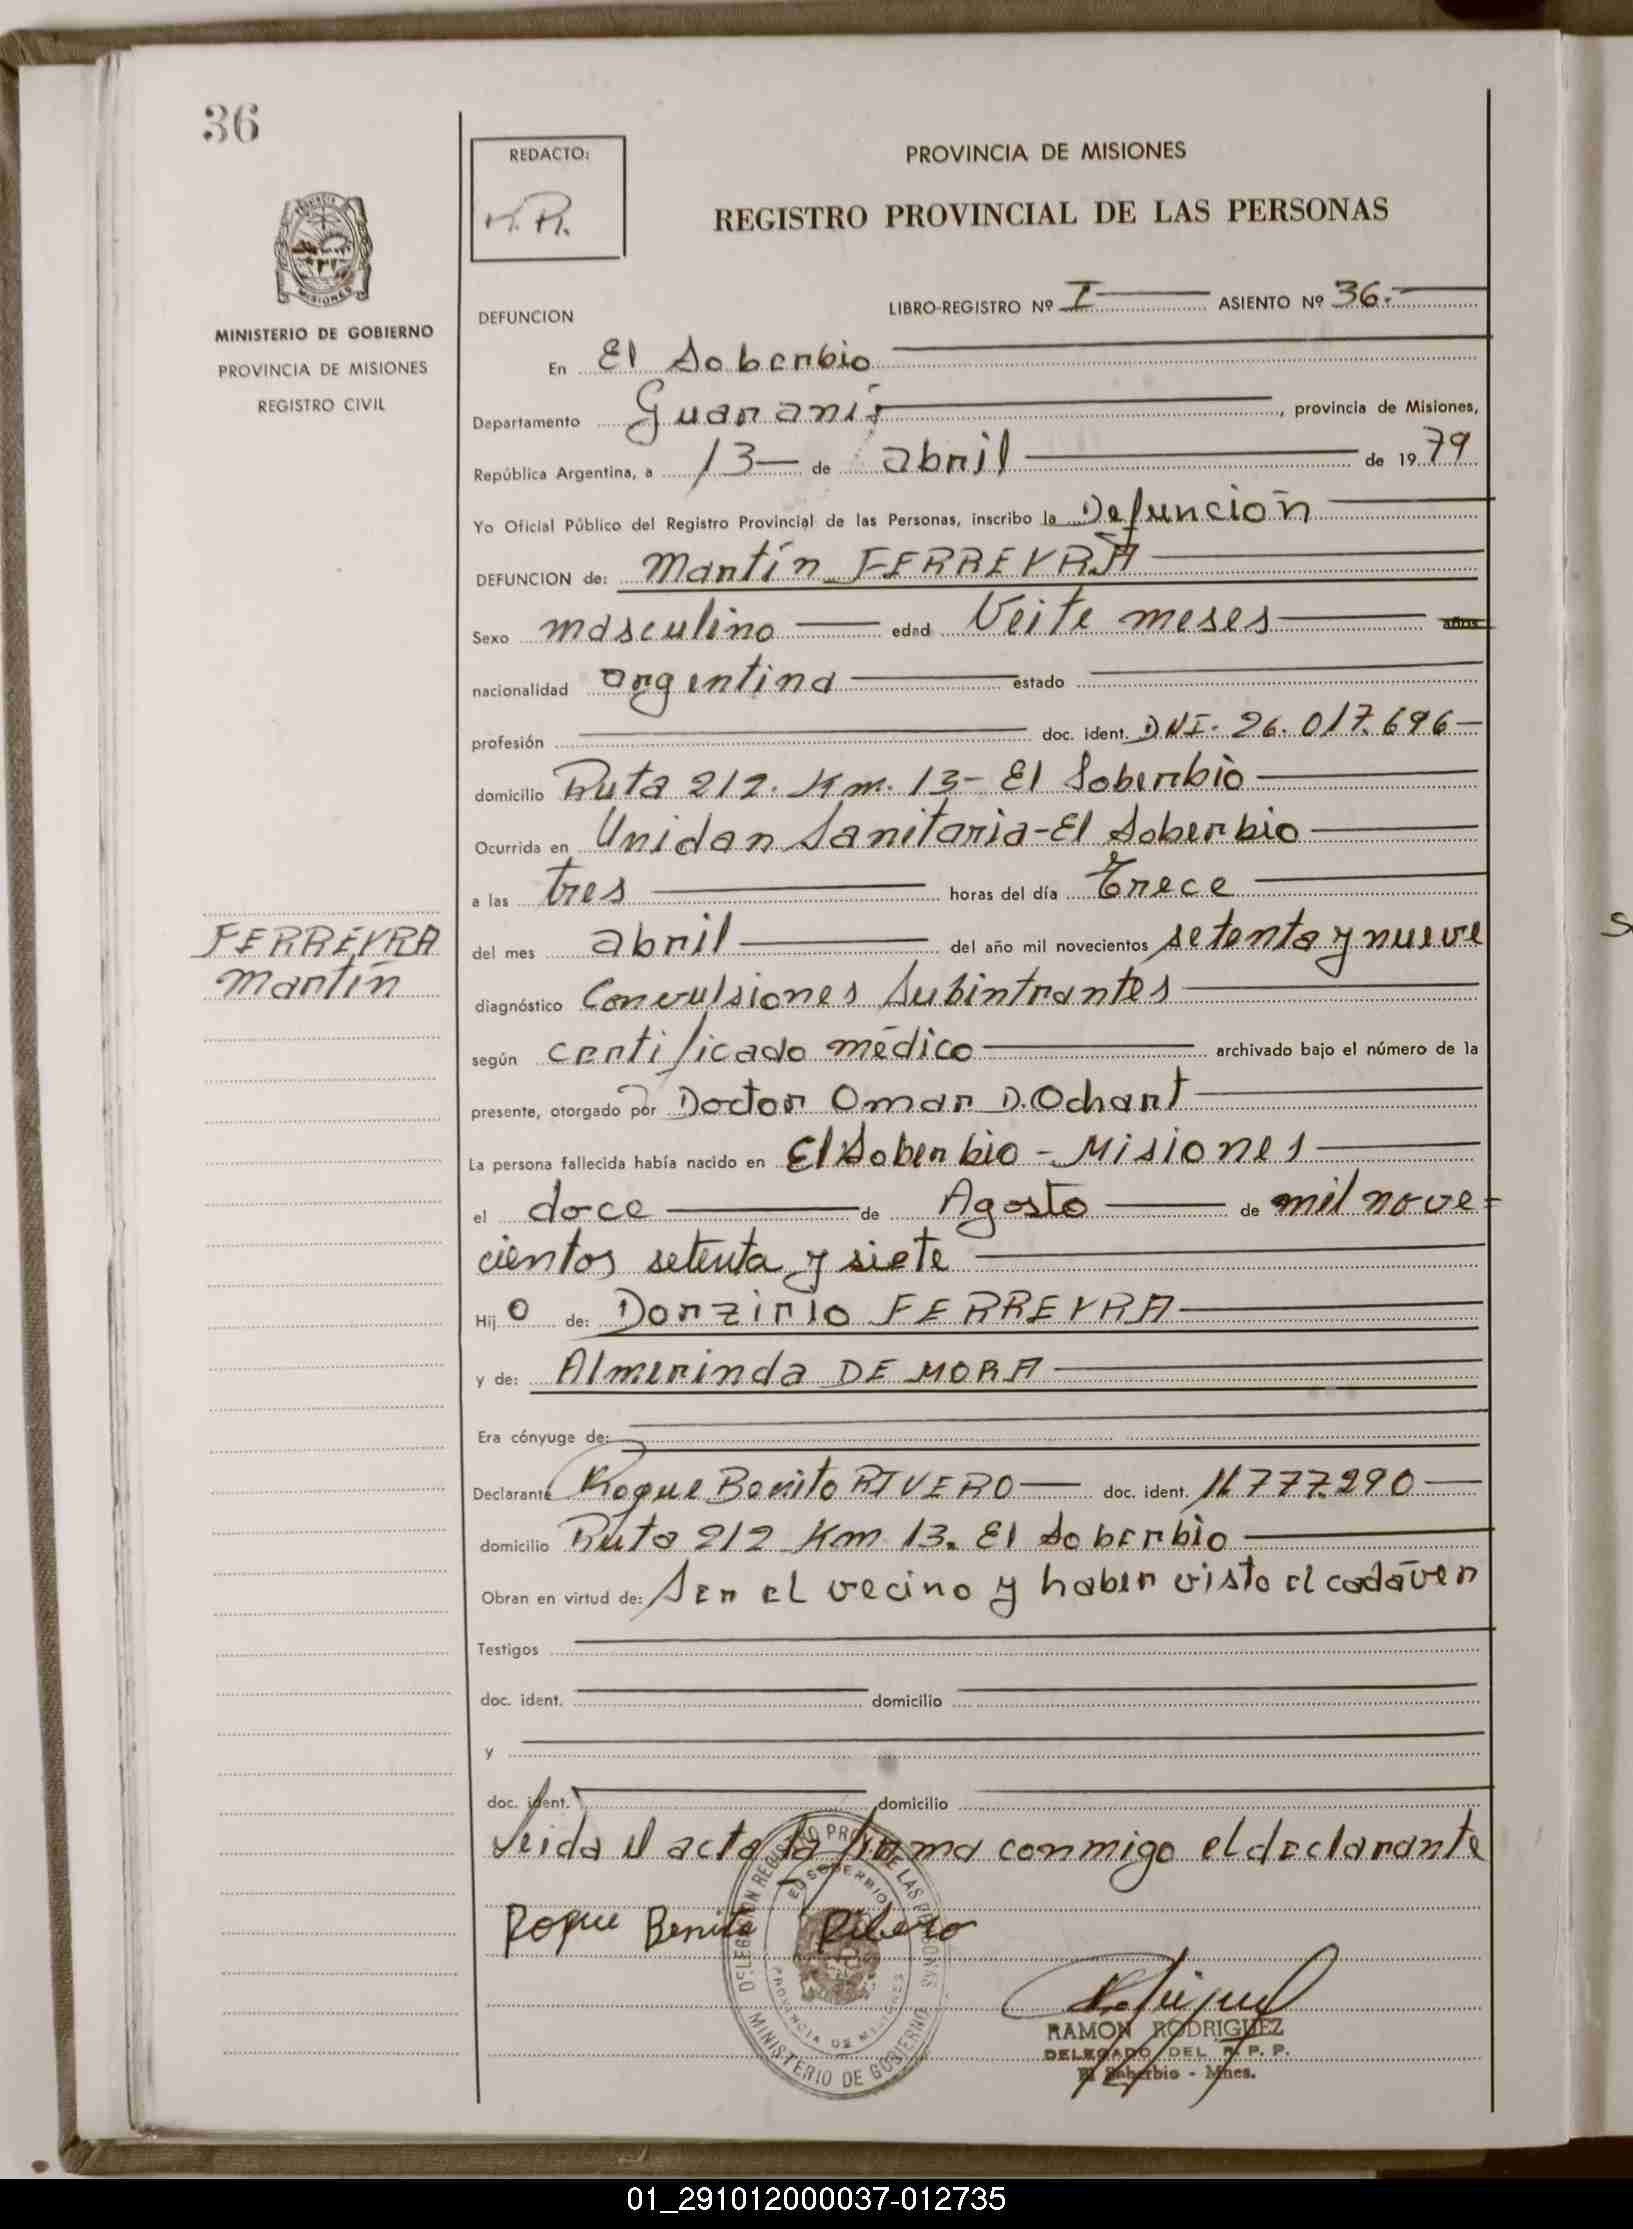 36
REDACTO:
PROVINCIA DE MISIONES
REGISTRO PROVINCIAL DE LAS PERSONAS
MINISTERIO DE GOBIERNO
PROVINCIA DE MISIONES
REGISTRO CIVIL
DEFUNCION LIBRO-REGISTRO Nº I ASIENTO Nº 36.
En El Soberbio
Departamento Guaraní, provincia de Misiones,
República Argentina, a 13 de abril de 1979
Yo Oficial Público del Registro Provincial de las Personas, inscribo la Defunción
DEFUNCION de: Martín FERREYRA
Sexo masculino edad Veite meses años
nacionalidad argentina estado
profesión doc. ident. DNI. 26.017.696
domicilio Ruta 212. Km. 13- El Soberbio
Ocurrida en Unidan Sanitaria-El Soberbio
a las tres horas del día Trece
FERREYRA
Martín
del mes abril del año mil novecientos setenta y nueve
diagnóstico Convulsiones Subintrantes
según certificado médico archivado bajo el número de la
presente, otorgado por Doctor Omar D. Ochart
La persona fallecida había nacido en El Soberbio - Misiones
el doce de Agosto de mil nove=
cientos setenta y siete
Hijo de: Dorzirio FERREYRA
y de: Almerinda DE MORA
Era cónyuge de:
Declarante Roque Benito RIVERO doc. ident. 11.777.290
domicilio Ruta 212 Km 13. El Soberbio
Obran en virtud de: Ser el vecino y haber visto el cadáver
Testigos
doc. ident. domicilio
y
doc. ident. domicilio
Leida el acta la firma conmigo el declarante
Roque Benito Ribero
DELEGACION REGISTRO PROV. DE LAS PERSONAS
EL SOBERBIO
PROVINCIA DE MISIONES
MINISTERIO DE GOBIERNO
RAMON RODRIGUEZ
DELEGADO DEL R. P. P.
El Soberbio - Mnes.
01_291012000037-012735